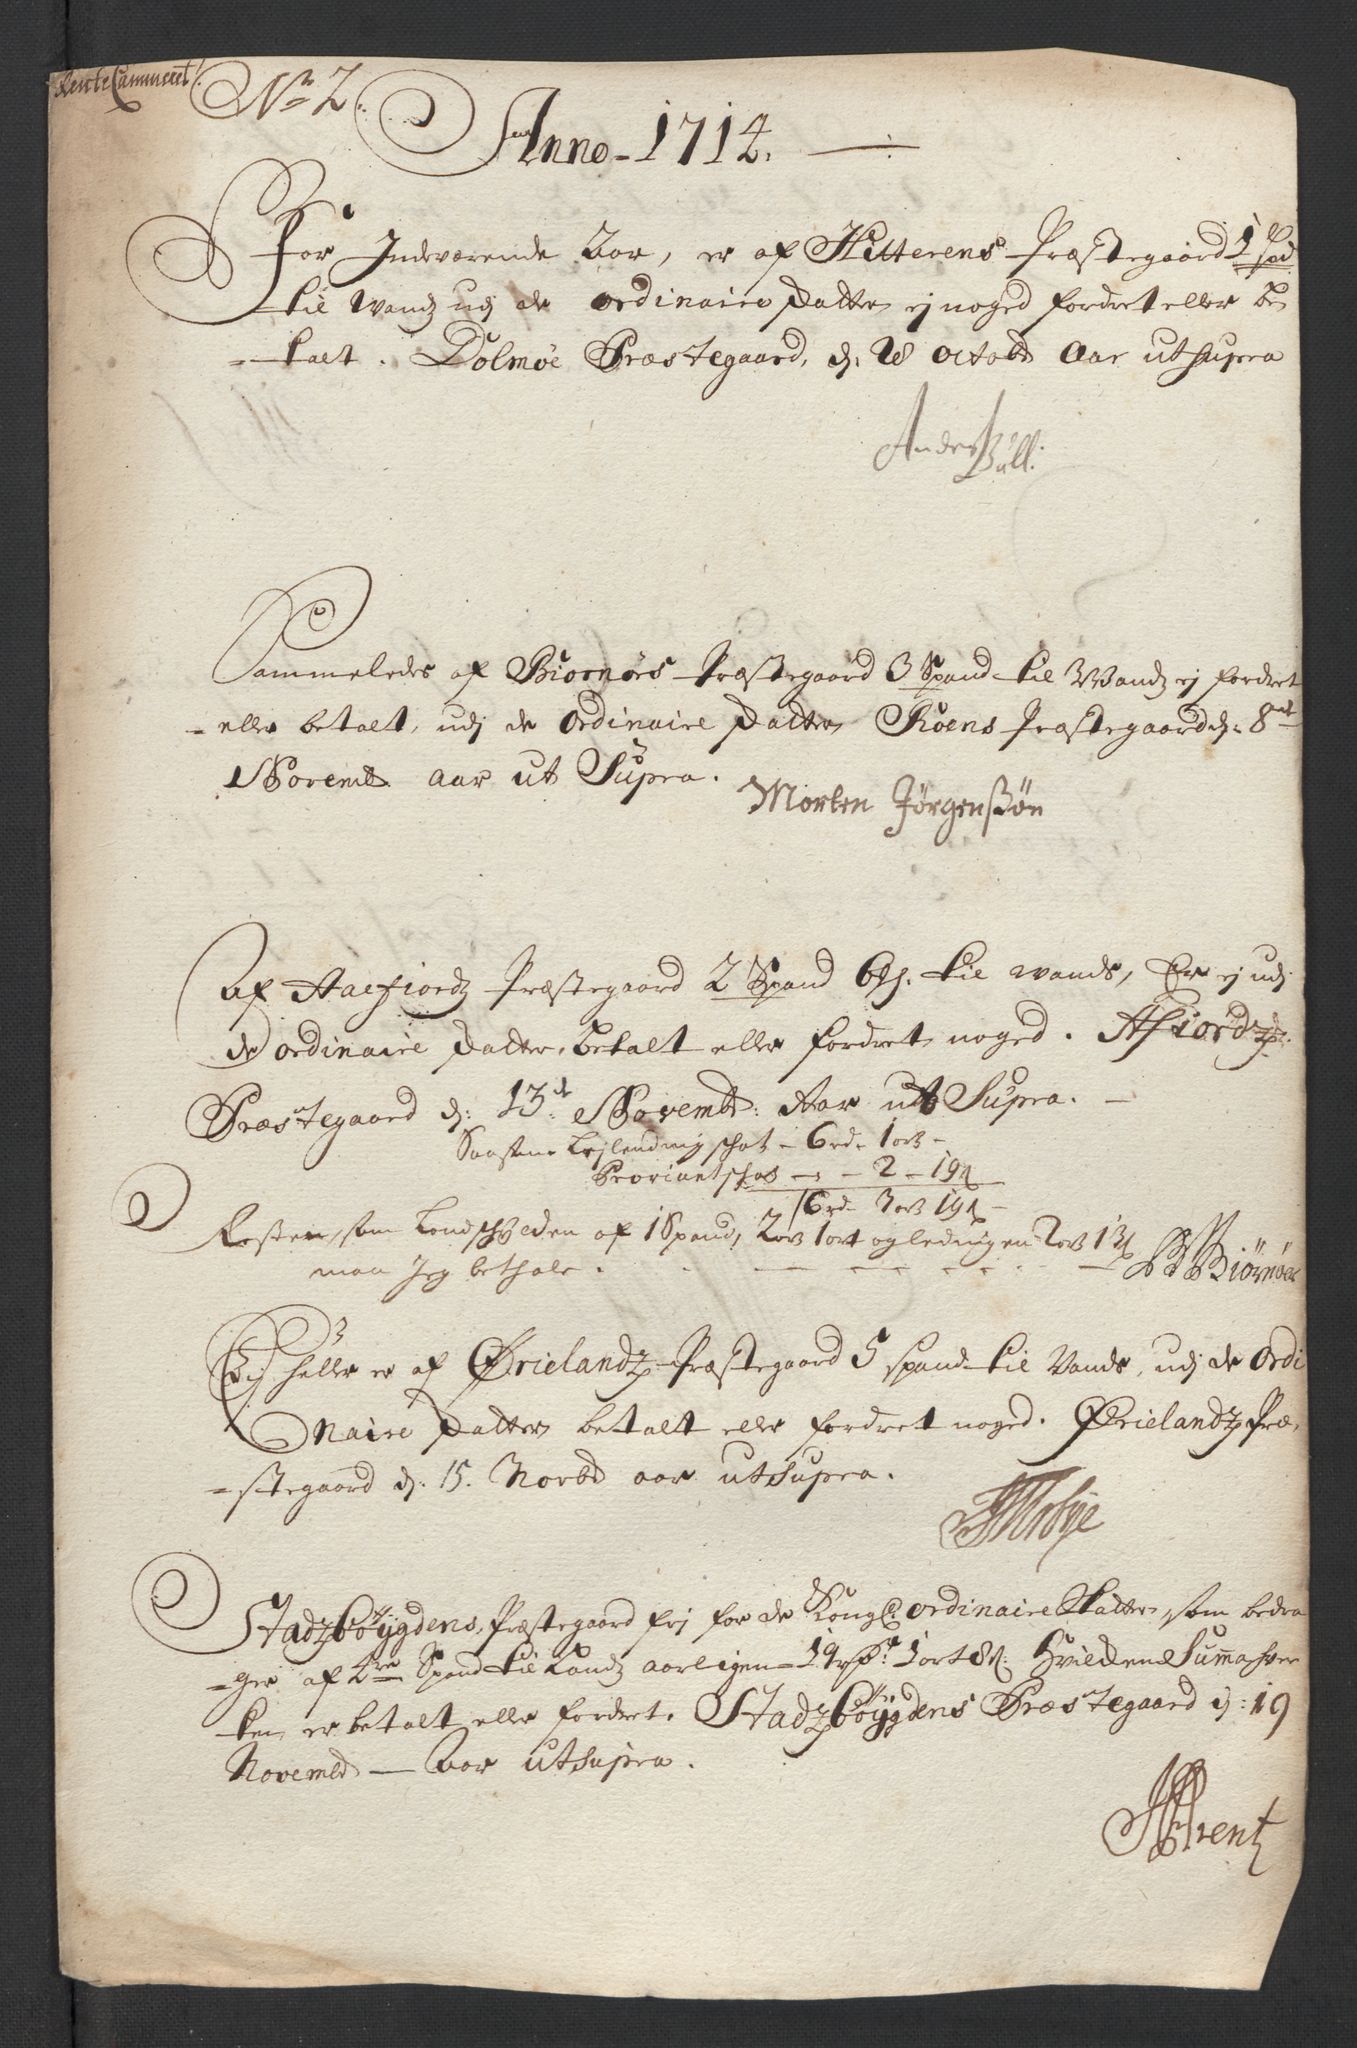 RenteCammeret
No 2.
Anno - 1714.
For Indeværende Aar, er af Hitterens Præstegaard 1 spd
til Wandz udj de ordinaire Skatter ej noged fordret eller be
talt. Dolmøe Præstegaard, dj: 28 octobr Aar ut supra
Anders Büll.
Sammeledes af Biornörs Præstegaard 3 Spand til Wandz ej fordret
eller betalt, udj de Ordinaire Skatter Röens Præstegaard dj: 8de
Novembr aar ut Supra.
Morten Jørgensøn
Af Aaefiordz Præstegaard 2 Spand til wands, Er ej udj
de ordinaire Skatter, betalt eller fordret noged. Afiordz
Præstegaard dj: 13de Novembr: Aar ut Supra. -
Leylendning schat - 6 rd. 1 ort -
Proviantskat - - 2 - 19
6 rd. 3 ort 19
Resten, som af 1 Spand, 2 ort og ledningen 2 ort 13
maa Jeg bethale. Biørnör
Ej heller er af Ørielandz Præstegaard 5 spand til Vands, udj de Ordi
Naire Skatter betalt eller fordret noged. Ørielandz Præ,
stegaard dj: 15. Novbr aar ut Supra.
Stadzböygdens, Præstegaard frj for de Kongl: ordinaire Skatter, som bedra
ger af Spand til Landz aarligen 19 rdr 1 ort 8 s: Hvilden Summa hver
ken er betalt eller fordret. Stadzböygdens Præstegaard dj: 19
Novembr - Aar ut supra.
Arentz